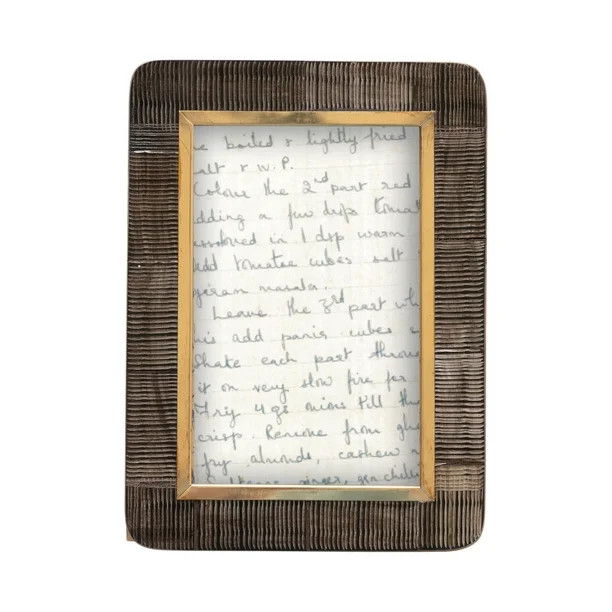 e boiled & lightly fried
alt & W.P.
Colour the 2nd part red
dding a few drops tomat
issolved in 1 dsp warm
add tomatoe cubes salt
garam masala.
Leave the 3rd part wh
is add panir cubes s
Shake each part throu
it on very slow fire for
Fry 4 gs onions till th
crisp. Remove from gh
fry almonds, cashew n
ginger, grn chill